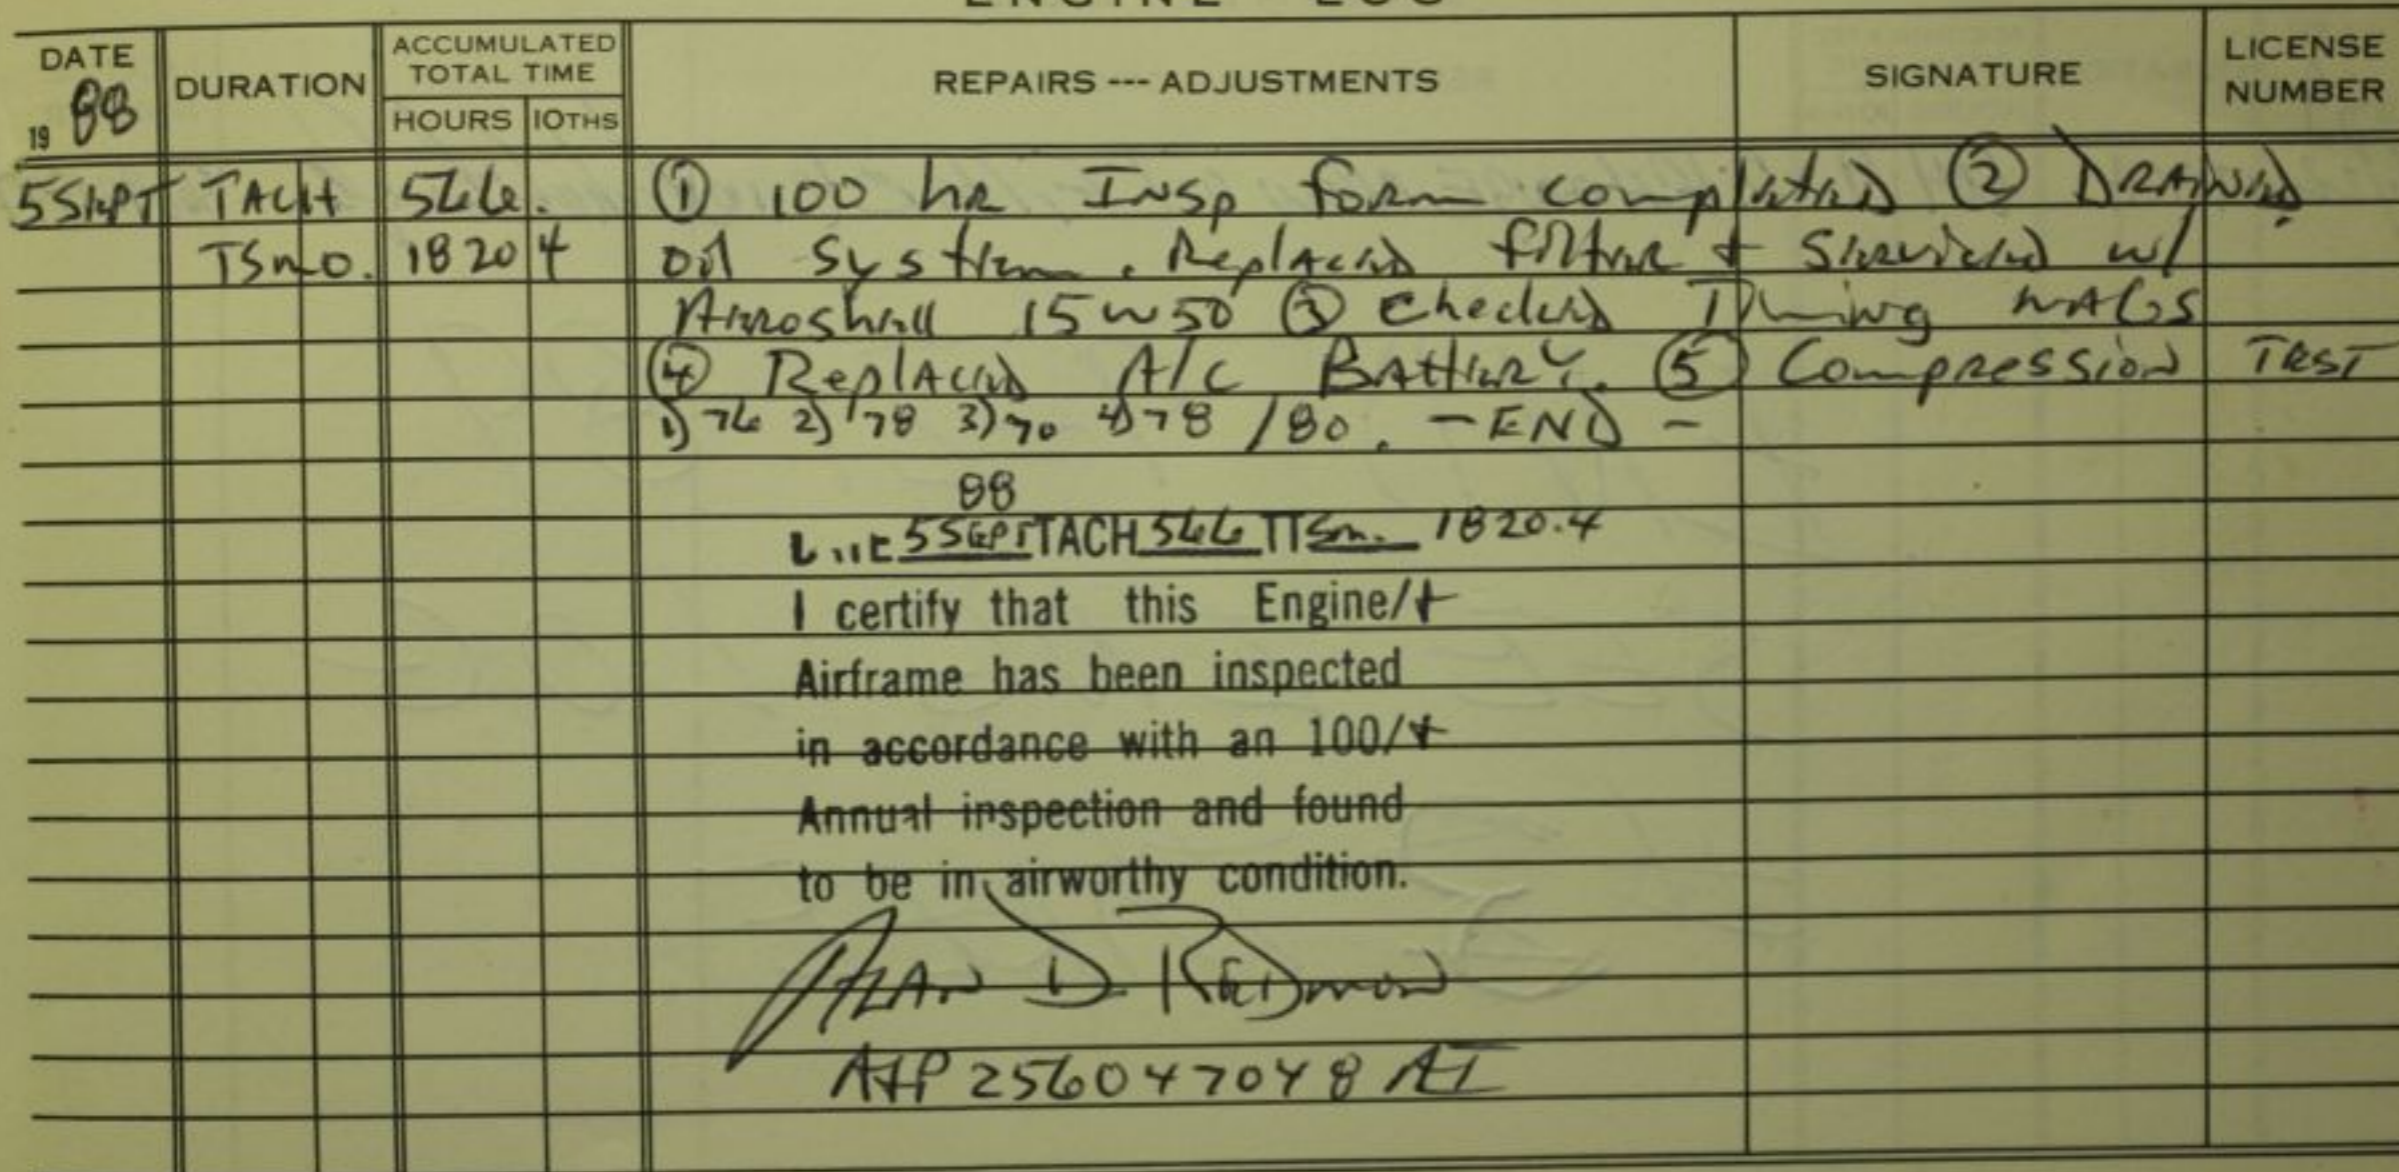 ENGINE LOG
DATE 19 88 DURATION ACCUMULATED TOTAL TIME HOURS 10THS REPAIRS --- ADJUSTMENTS SIGNATURE LICENSE NUMBER
5 SEPT TACH 566. ① 100 hR INSp foRm completed ② DRAINED
TSmO. 1820 4 oil System. Replaced filter + Serviced w/
Aeroshell 15w50 ③ Checked Timing MAGS
④ Replaced A/C BAtteRY. ⑤ Compression TEST
1) 76 2) 78 3) 70 4) 78 /80. -END-
88
5 SEPT TACH 566 TTSm. 1820.4
I certify that this Engine/+
Airframe has been inspected
in accordance with an 100/+
Annual inspection and found
to be in airworthy condition.
ALAN D. REDMON
A+P 256047048 AI